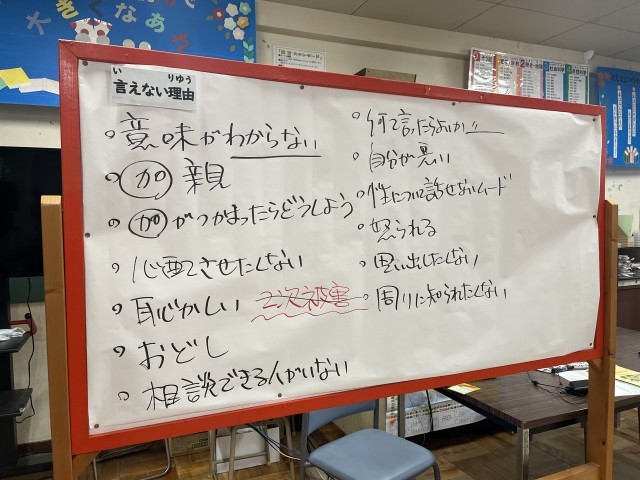 大きくなあ
い りゆう
言えない理由
。意味がわからない
。加 親
。加がつかまったらどうしよう
。心配させたくない
。恥かしい 二次被害
。おどし
。相談できる人がいない
。何て言ったらよいか!!
。自分が悪い
。性について話せないムード
。怒られる
。思い出したくない
。周りに知られたくない